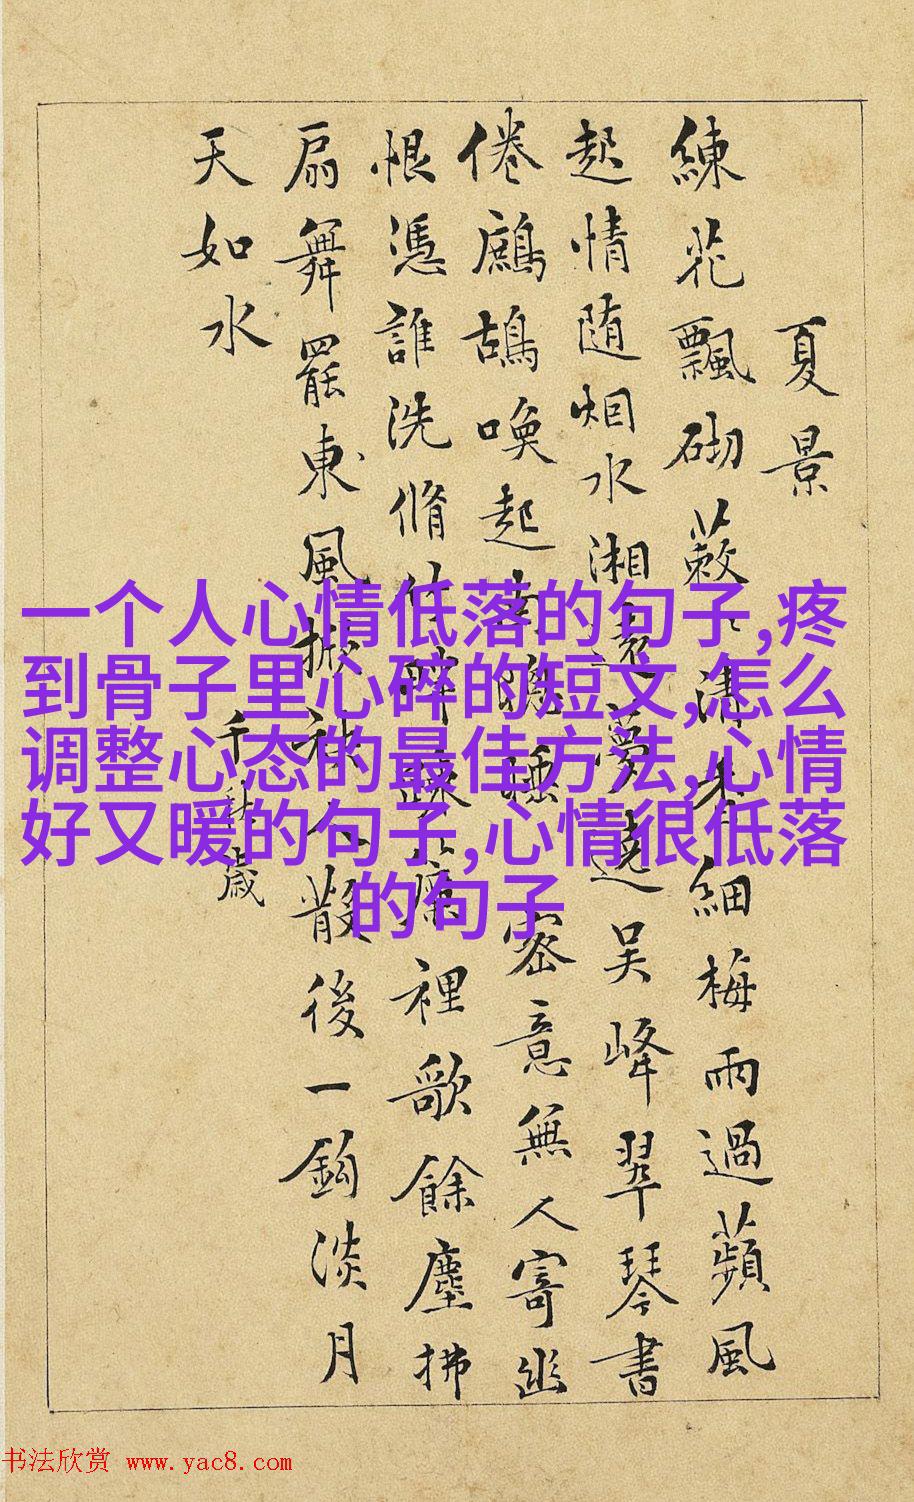 夏景
練花飄砌蔌〻清香細梅雨過蘋風
起情随烟水湘遠夢遶吳峰翠琴書
倦鷓鴣喚起南睡密意無人寄幽
恨憑誰洗脩竹畔踈裡歌餘塵拂
扇舞罷東風掀袂人散後一鈎淡月
天如水
千秋歲
一个人心情低落的句子,疼
到骨子里心碎的短文,怎么
调整心态的最佳方法,心情
好又暖的句子,心情很低落
的句子
书法欣赏 www.yac8.com